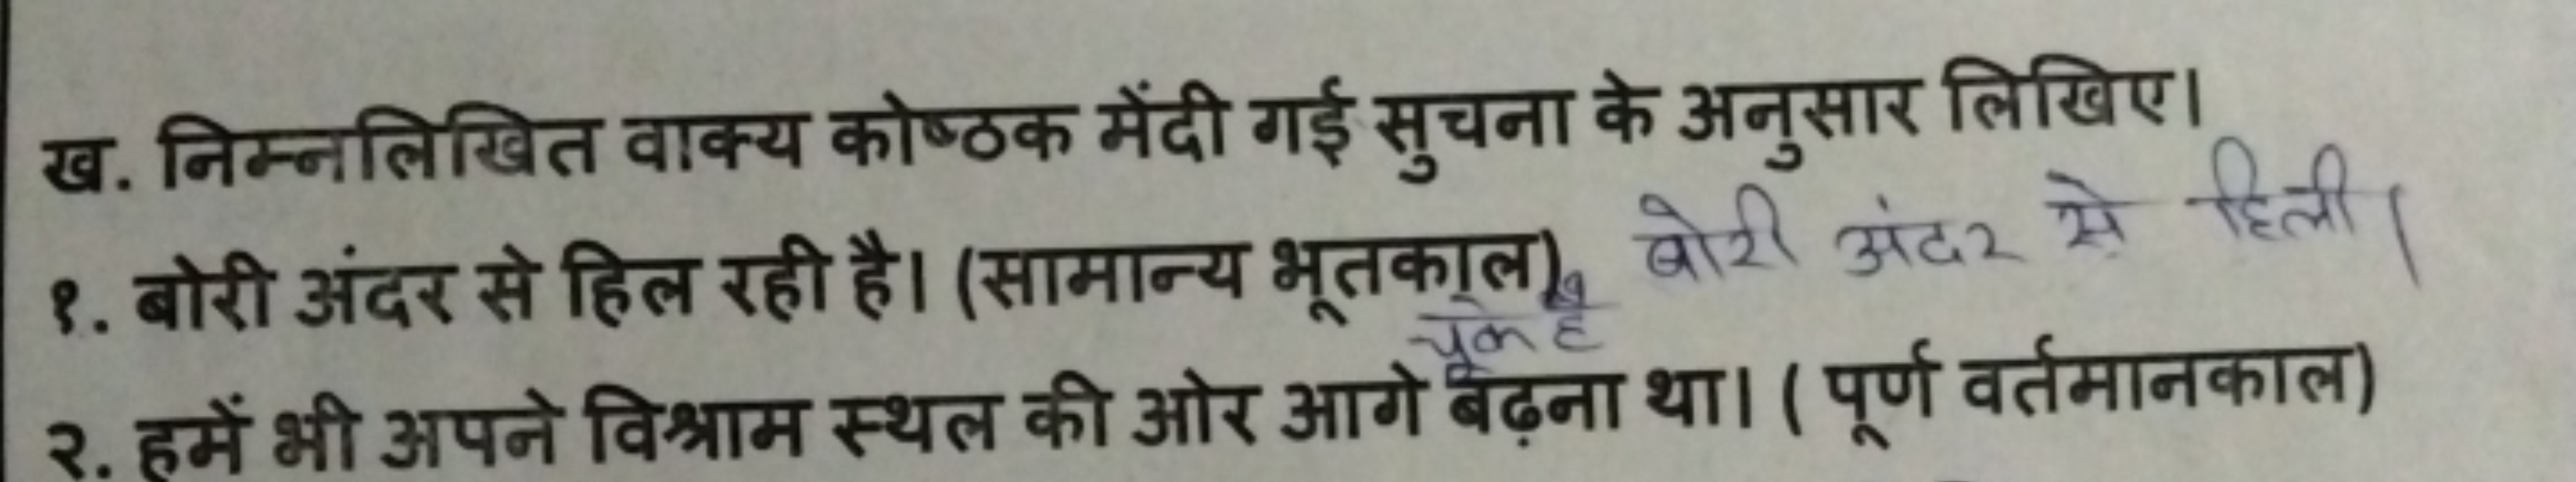 ख. निम्नलिखित वाक्य कोष्ठक मेंदी गई सुचना के अनुसार लिखिए।
१. बोरी अंदर से हिल रही है। (सामान्य भूतकाल) बोरी अंदर से हिली।
चूके है
२. हमें भी अपने विश्राम स्थल की ओर आगे बढ़ना था। ( पूर्ण वर्तमानकाल)